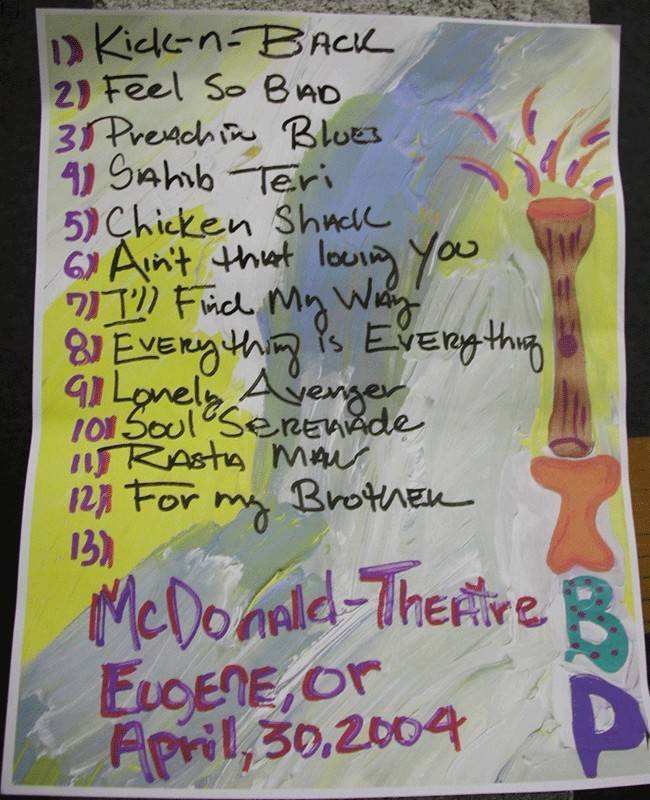 1) Kick-n-Back
2) Feel So Bad
3) Preachin Blues
4) Sahib Teri
5) Chicken Shack
6) Ain't that loving You
7) I'll Find My Way
8) Everything is Everything
9) Lonely Avenger
10) Soul Serenade
11) Rasta Man
12) For my Brother
13)
McDonald-Theatre
Eugene, Or
April, 30, 2004
I
B
P